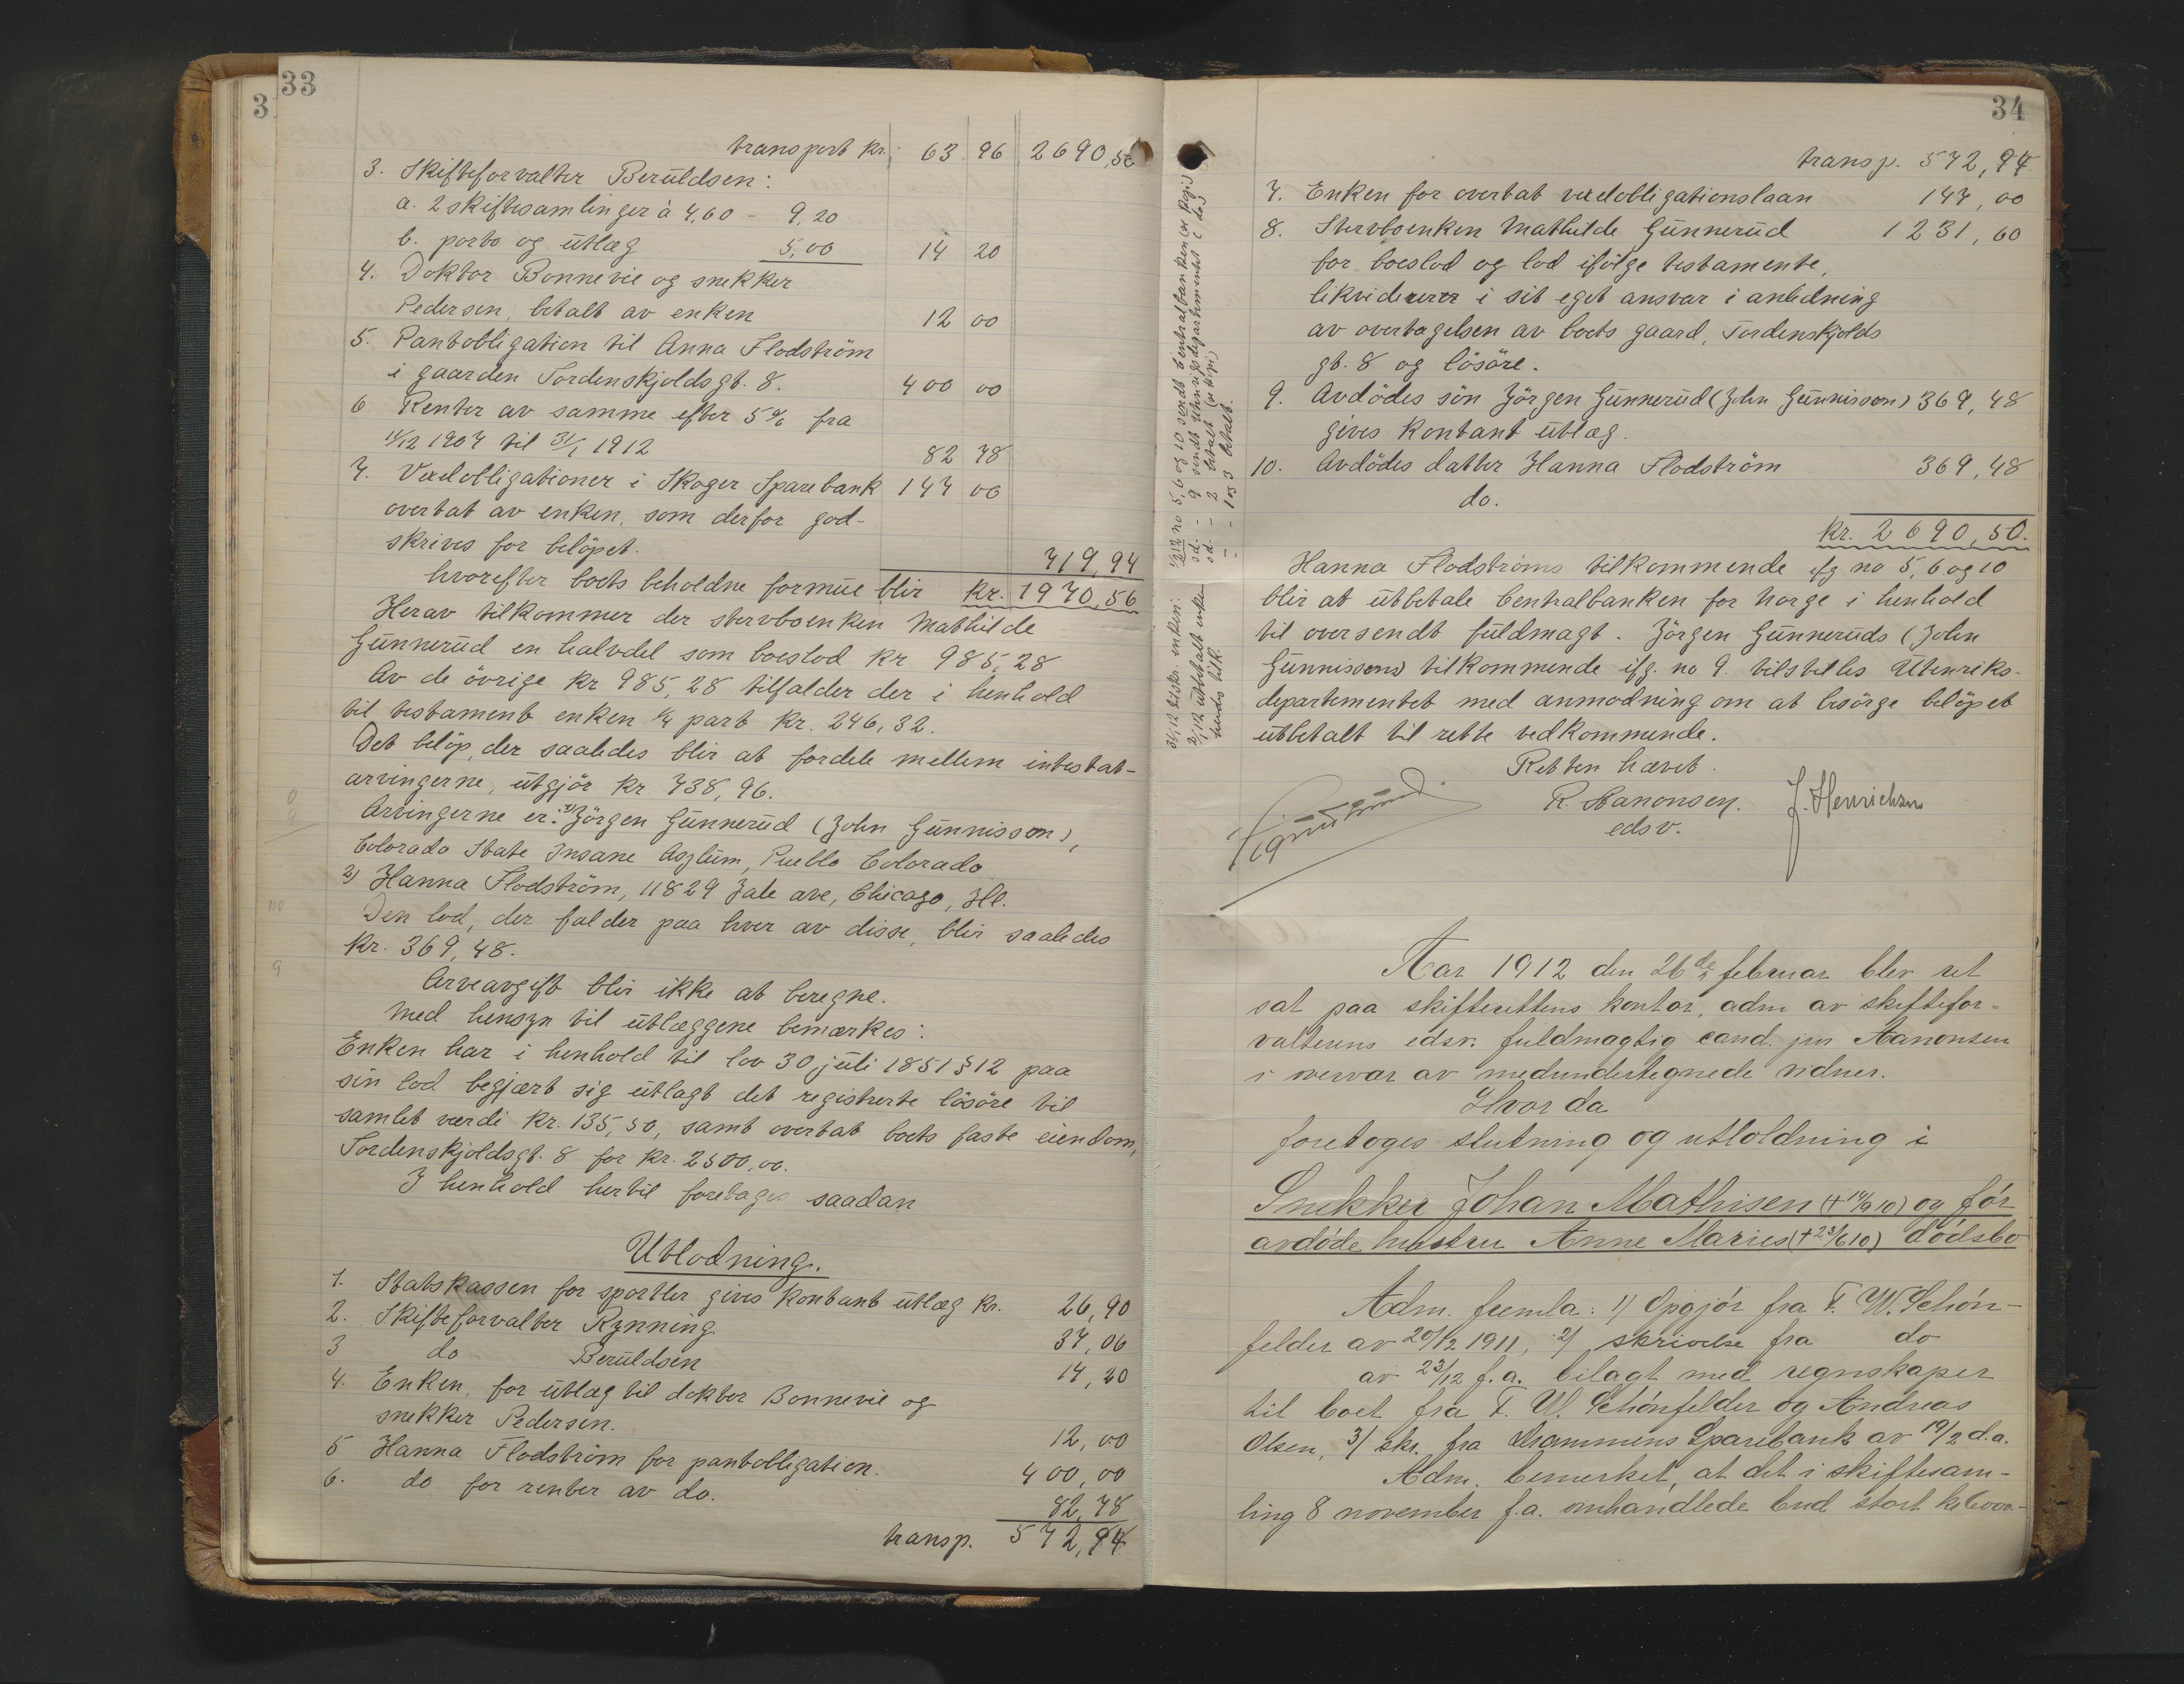 33
3
transport kr. 63 96 2690,50
3. Skifteforvalter Beruldsen:
a. 2 skiftesamlinger à 4,60 - 9,20
b. porto og utlæg 5,00 14 20
4. Doktor Bonnevie og snekker
Pedersen, betalt av enken 12 00
5. Pantobligation til Anna Flodström
i gaarden Tordenskjoldsgt. 8. 400 00
6 Renter av samme efter 5% fra
11/12 1907 til 31/1 1912 82 78
7. Vexelobligationer i Skoger Sparebank 147 00
overtat av enken, som derfor god-
skrives for belöpet. 719,94
hvorefter boets beholdne formue blir kr. 1970,56
Herav tilkommer der stervboenken Mathilde
Gunnerud en halvdel som boeslod kr 985,28
Av de övrige kr 985,28 tilfalder der i henhold
til testament enken 1/4 part kr. 246,32.
Det belöp, der saaledes blir at fordele mellem intestat-
arvingerne, utgjör kr 738,96.
Arvingerne er: 1) Jörgen Gunnerud (John Gunnisson),
Colorado State Insane Asylum, Pueblo Colorado
2) Hanna Flodström, 11829 Yale ave, Chicago, Ill.
Den lod, der falder paa hver av disse, blir saaledes
kr. 369,48.
Arveavgift blir ikke at beregne.
Med hensyn til utlæggene bemærkes:
Enken har i henhold til lov 30 juli 1851 § 12 paa
sin lod begjært sig utlagt det registrerte lösöre til
samlet værdi kr. 135,50, samt overtat boets faste eiendom,
Tordenskjoldsgt. 8 for kr. 2500,00.
I henhold hertil foretages saadan
Utlodning.
1. Statskassen for sportler gives kontant utlæg kr. 26,90
2. Skifteforvalter Rynning 37,06
3 do Beruldsen 14,20
4. Enken, for utlæg til doktor Bonnevie og
snekker Pedersen. 12,00
5 Hanna Flodström for pantobligation. 400,00
6. do for renter av do. 82,78
transp. 572,94
31/1 12 tilskr. enken:
2/1 12 utbetalt enken
hendes tilk.
1/2 12 no 5, 6 og 10 sendt Centralbanken (se kopi)
sd. - 9 sendt Utenriksdepartementet i dag
sd. - 2 betalt (se kopi)
- 1 og 3 betalt.
34
transp. 572,94
7. Enken for overtat vexelobligationslaan 147,00
8. Stervboenken Mathilde Gunnerud 1231,60
for boeslod og lod ifölge testamente,
likviderer i sit eget ansvar i anledning
av overtagelsen av boets gaard, Tordenskjolds
gt. 8 og lösöre.
9. Avdödes sön Jörgen Gunnerud (John Gunnisson) 369,48
gives kontant utlæg.
10. Avdödes datter Hanna Flodström 369,48
do.
kr. 2690,50.
Hanna Flodströms tilkommende ifg no 5, 6 og 10
blir at utbetale Centralbanken for Norge i henhold
til oversendt fuldmagt. Jörgen Gunneruds (John
Gunnissons) tilkommende ifg. no 9 tilstilles Utenriks-
departementet med anmodning om at besörge belöpet
utbetalt til rette vedkommende.
Retten hævet.
R. Aanonsen. J. Henrichsen
edsv.
Aar 1912 den 26de februar blev ret
sat paa skifterettens kontor, adm av skiftefor-
valterens edsv. fuldmægtig cand. jur Aanonsen
i overvær av medundertegnede vidner.
Hvor da
foretoges slutning og utlodning i
Snekker Johan Mathisen (+ 14/9 10) og før
avdøde hustru Anne Maries (+ 23/6 10) dødsbo
Adm. fremla: 1) Opgjør fra F. W. Schøn-
felder av 20/12 1911, 2) skrivelse fra do
av 23/12 f.a. bilagt med regnskaper
til boet fra F. W. Schønfelder og Andreas
Olsen, 3) skr. fra Drammens Sparebank av 19/2 d.a.
Adm. bemerket, at det i skiftesam-
ling 8 november f.a. omhandlede bud stort kr 6000.-